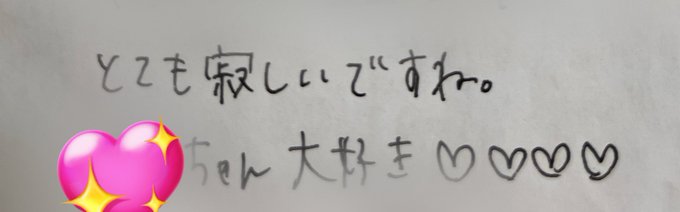 とても寂しいですね。
ちゃん大好き♡♡♡♡